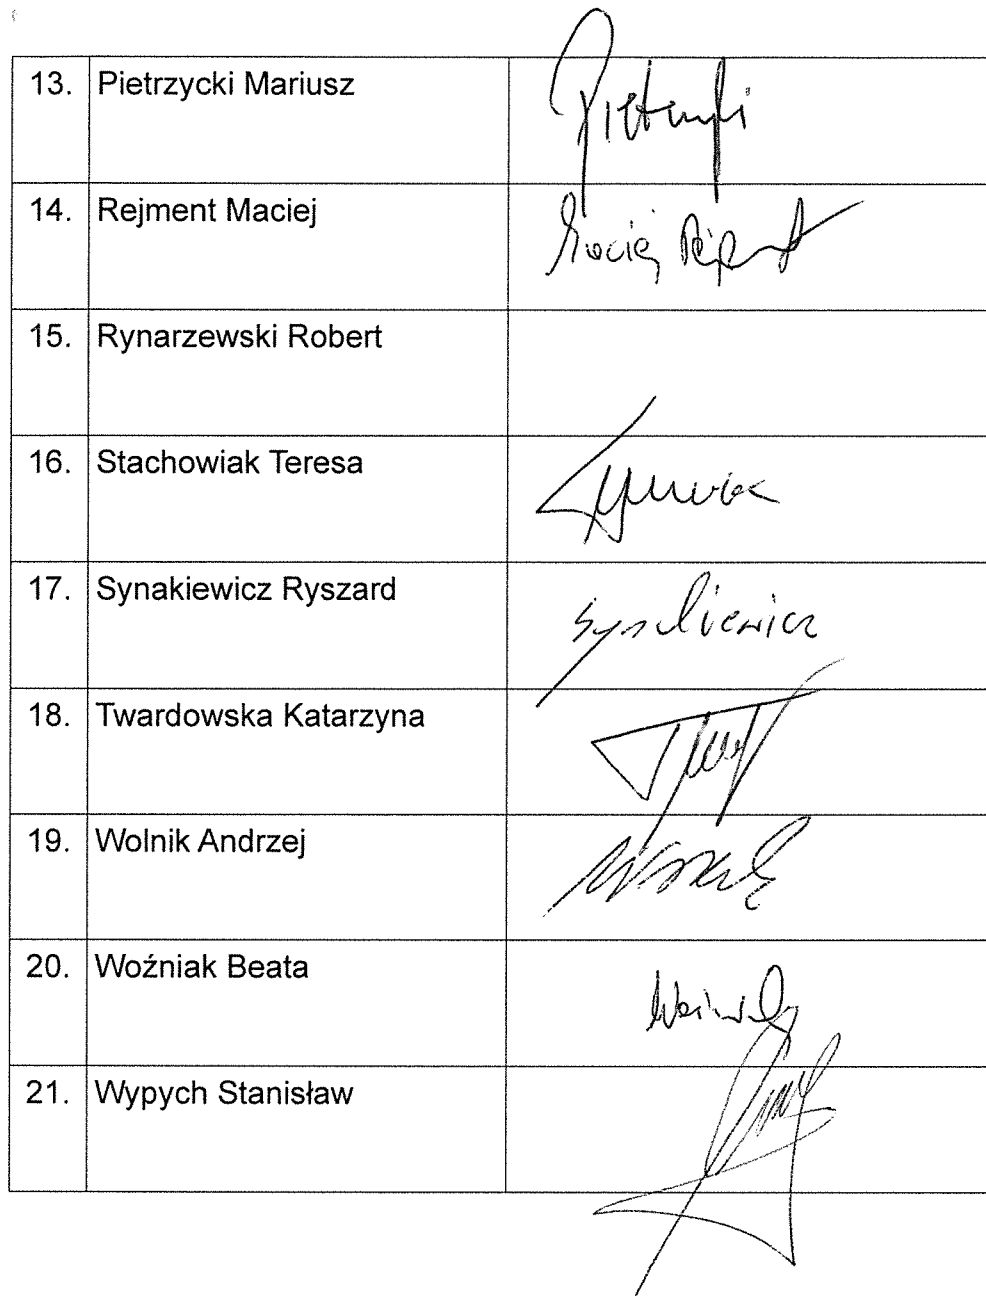 13. Pietrzycki Mariusz
14. Rejment Maciej Maciej Rejment
15. Rynarzewski Robert
16. Stachowiak Teresa
17. Synakiewicz Ryszard Synakiewicz
18. Twardowska Katarzyna
19. Wolnik Andrzej
20. Woźniak Beata
21. Wypych Stanisław